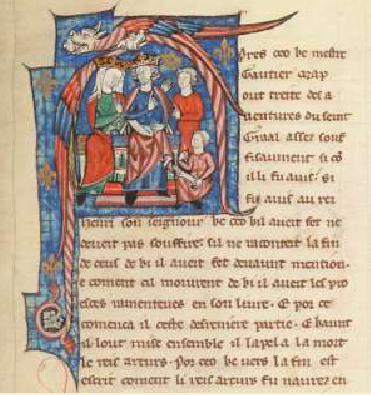 pres ceo ke mestre
Gautier map
out treite des a
uentures du seint
Graal assez souf
fisaument si cõ
il li fu auis. si
fu auis au rei
Henri son seignour ke ceo kil aueit fet ne
deueit pas souffire. sil ne racontert la fin
de ceus de ki il aueit fet deuaunt mention.
e coment cil morurent de ki il aueit les pro
esces ramenteues en son liure. E por ce
comenca il ceste derreiniere partie. E kaunt
il lout mise ensemble il lapela la mort
le reis arturs. Por ceo ke uers la fin est
escrit coment li reis arturs fu naurez en